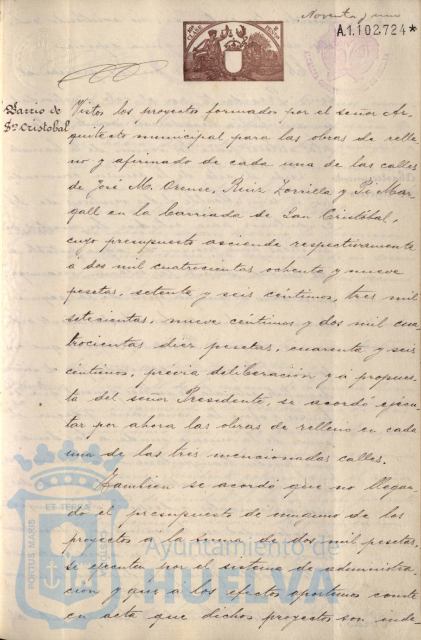 Noventa y uno
A.1.102.724*
Barrio de
Sn Cristobal
Vistos los proyectos formados por el señor Ar-
quitecto municipal para las obras de relle
no y afirmado de cada una de las calles
de José M. Orense, Ruiz Zorrilla y Pi Mar-
gall en la barriada de San Cristóbal,
cuyo presupuesto asciende respectivamente
á dos mil cuatrocientas ochenta y nueve
pesetas, setenta y seis céntimos, tres mil
setecientas, nueve céntimos y dos mil cua
trocientas diez pesetas, cuarenta y seis
céntimos, previa deliberación y á propues-
ta del señor Presidente, se acordó ejecu-
tar por ahora las obras de relleno en cada
una de las tres mencionadas calles.
Tambien se acordó que no llegan-
do el presupuesto de ninguno de los
proyectos á la suma de dos mil pesetas,
se ejecuten por el sistema de administra-
cion y que á los efectos oportunos conste
en acta que dichos proyectos son inde
PORTUS MARIS
ET TERRÆ
CUSTODIA
Ayuntamiento de
HUELVA